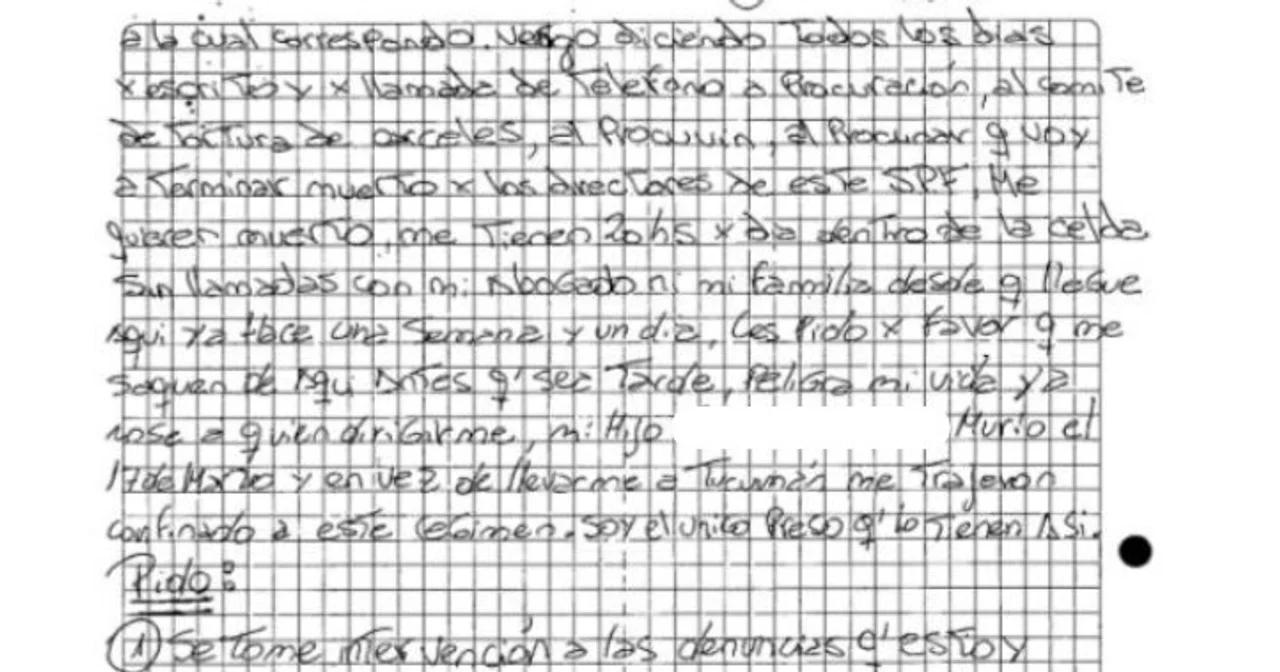 a la cual correspondo. Vengo diciendo Todos los dias
x escrito y x llamada de Telefono a Procuración, al comiTe
de Tortura de carceles, al Procuvin, al Procunar q voy
a Terminar muerto x los directores de este SPF, Me
quieren muerto, me Tienen 20hs x dia dentro de la celda
Sin llamadas con mi Abogado ni mi familia desde q llegue
Aqui ya hace una Semana y un dia, les Pido x favor q me
saquen de Aqui Antes q' sea Tarde, Peligra mi vida ya
nose a quien dirigirme, mi Hijo Murio el
17 de Marzo y en vez de llevarme a Tucumán me Trajeron
confinado a este regimen. Soy el unico Preso q' lo Tienen Asi.
Pido:
1 Se Tome intervención a las denuncias q' estoy